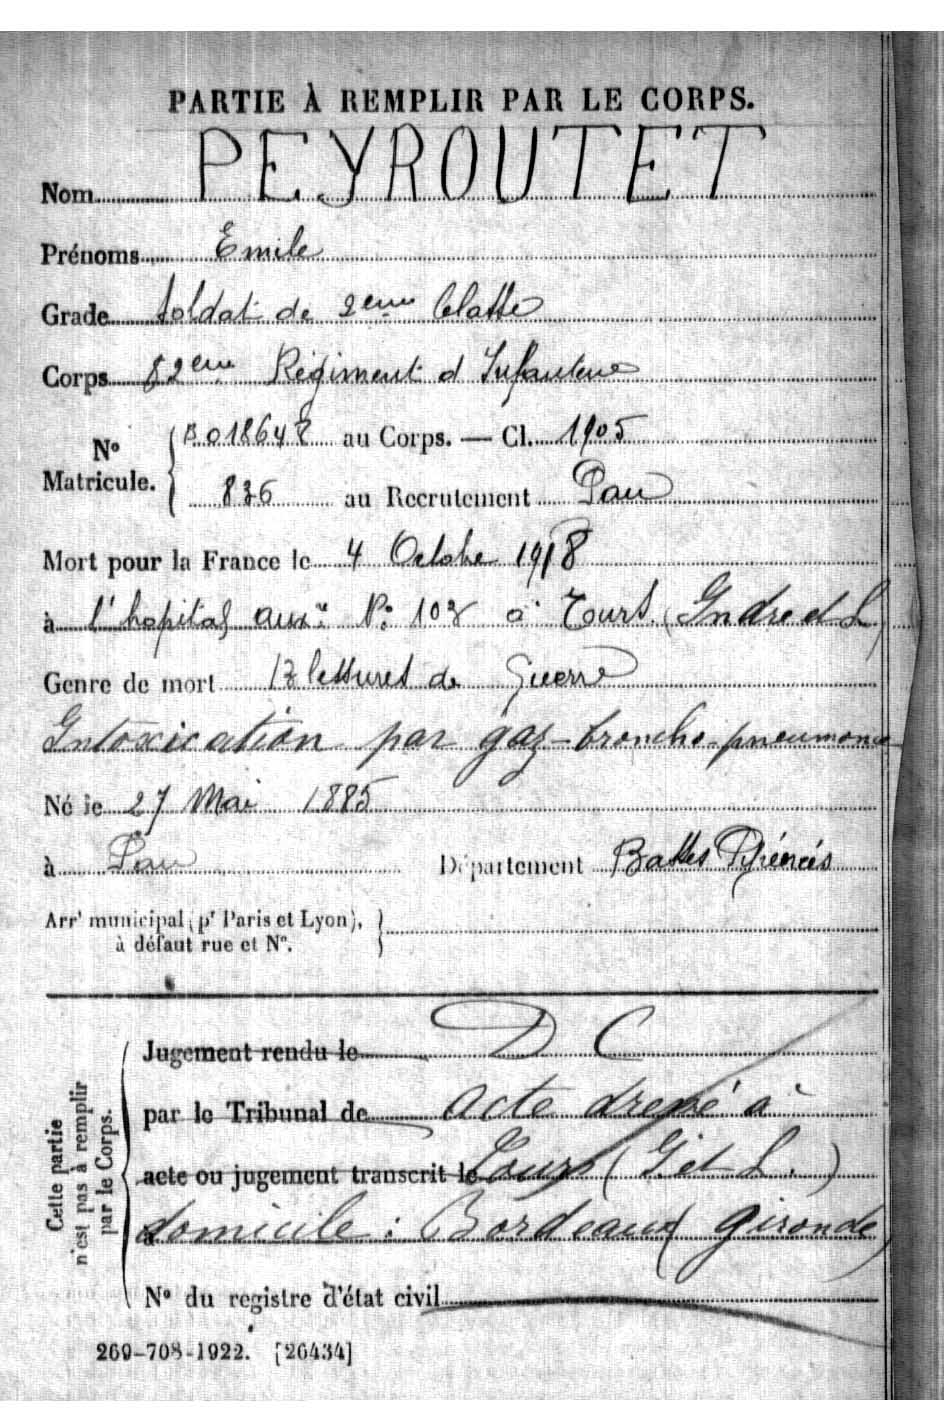 PARTIE À REMPLIR PAR LE CORPS.
Nom PEYROUTET
Prénoms Emile
Grade Soldat de 2eme Classe
Corps 82eme Régiment d Infanterie
No Matricule. 018648 au Corps. — Cl. 1905
836 au Recrutement Pau
Mort pour la France le 4 Octobre 1918
à l'hopital auxre No 108 à Tours (Indre et L)
Genre de mort Blessures de Guerre
Intoxication par gaz - broncho-pneumonie
Né le 27 Mai 1885
à Pau Département Basses Pyrénées
Arrt municipal (pr Paris et Lyon),
à défaut rue et No.
Cette partie
n'est pas à remplir
par le Corps.
Jugement rendu le D C
par le Tribunal de acte dressé à
acte ou jugement transcrit le Tours (I et L.)
à domicile : Bordeaux (Gironde)
No du registre d'état civil
269-708-1922. [26434]